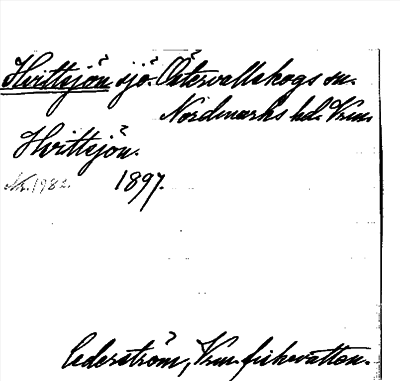 Hvittsjön sjö. Östervallskogs sn.
Nordmarks hd. Vrm.
Hvittsjön.
1897.
Cederström, Vrm. fiskevatten.